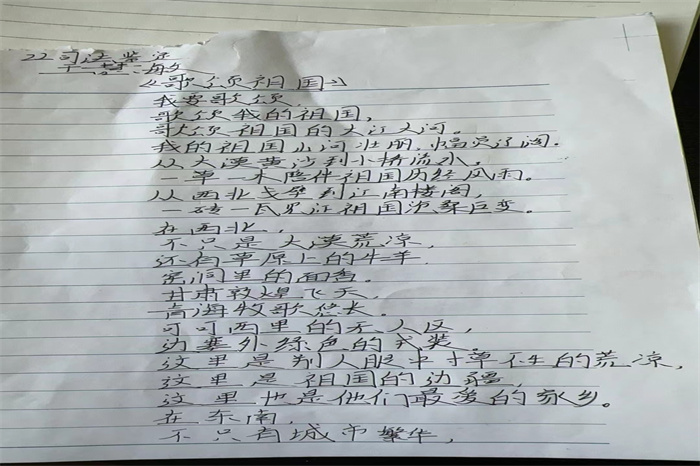 22司法鉴定
《歌颂祖国》
我要歌颂,
歌颂我的祖国,
歌颂祖国的大江大河。
我的祖国山河壮丽,幅员辽阔.
从大漠黄沙到小桥流水,
一草一木陪伴祖国历经风雨。
从西北戈壁到江南楼阁,
一砖一瓦见证祖国沧桑巨变。
在西北,
不只是大漠荒凉,
还有草原上的牛羊.
窑洞里的面香。
甘肃敦煌飞天.
青海牧歌悠长。
可可西里的无人区,
边塞外绿色的戎装。
这里是别人眼中寸草不生的荒凉,
这里是祖国的边疆,
这里也是他们最爱的家乡。
在东南,
不只有城市繁华,